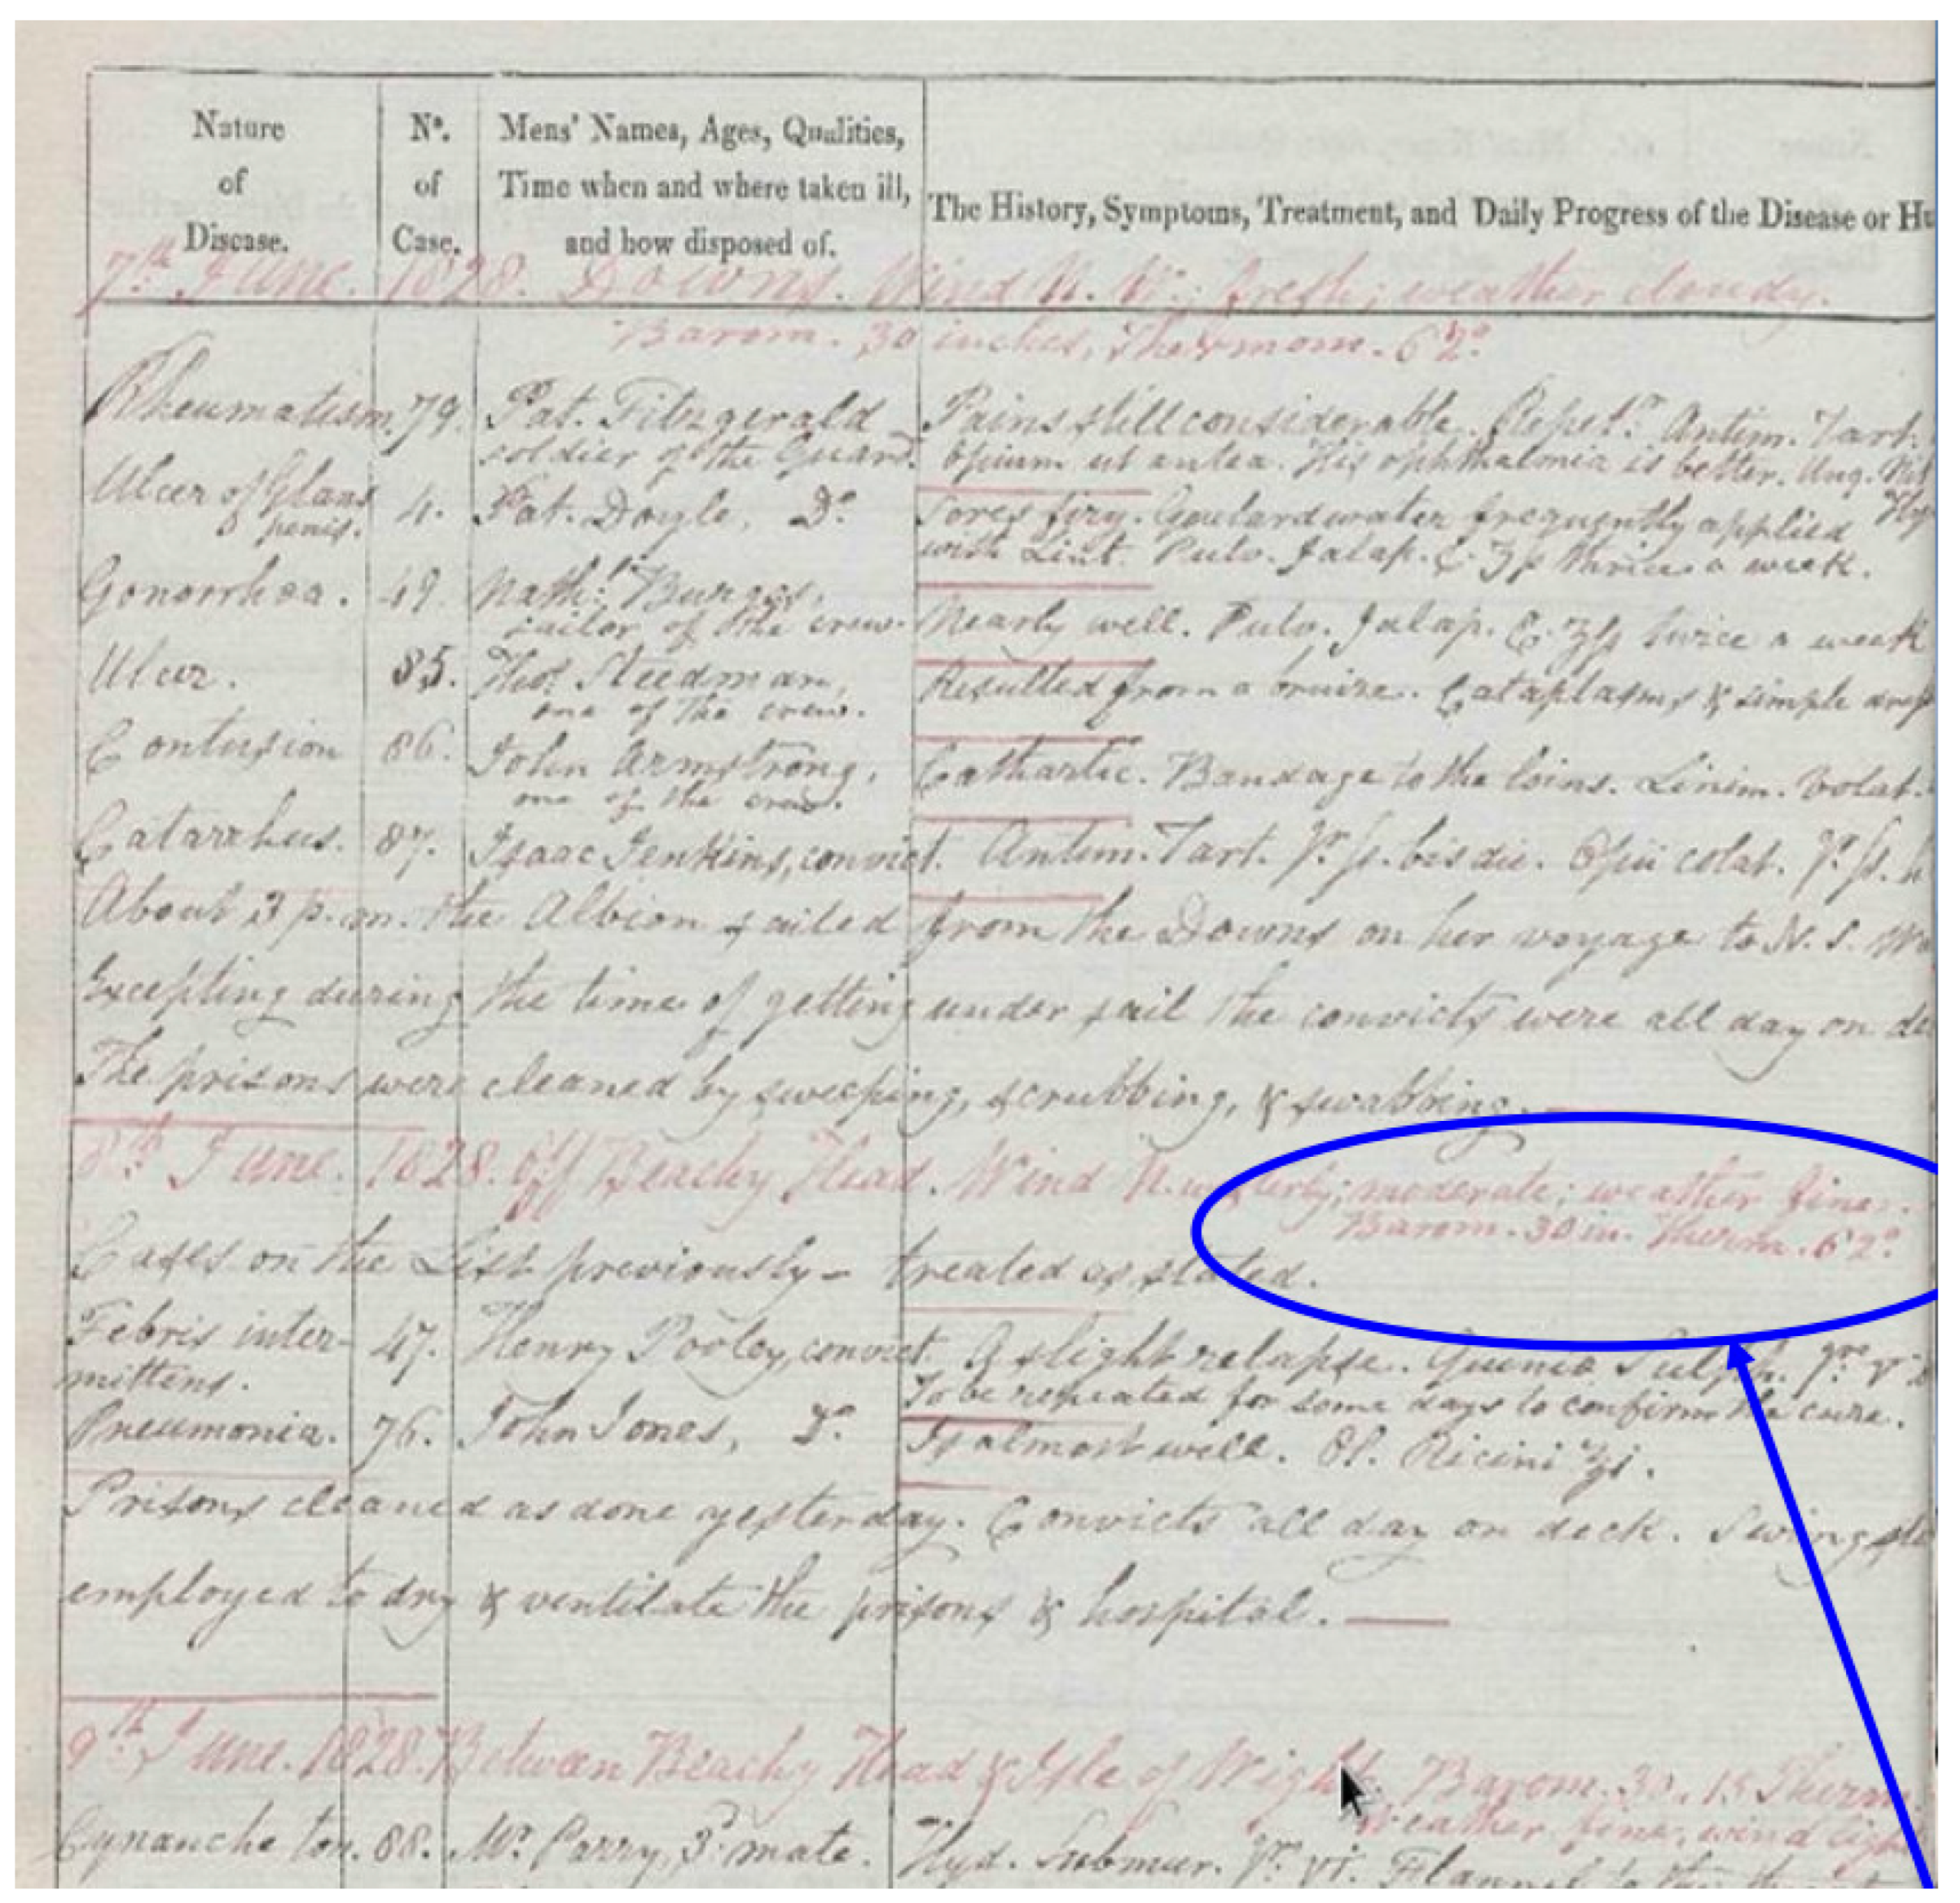 Nature
of
Disease.
No.
of
Case.
Mens' Names, Ages, Qualities,
Time when and where taken ill,
and how disposed of.
The History, Symptoms, Treatment, and Daily Progress of the Disease or Hu
7th June. 1828. Downs. Wind N. W.; fresh; weather cloudy.
Barom. 30 inches, Thermom. 62°.
Rheumatism. 79. Pat. Fitzgerald Pains still considerable. Antim. Tart.
soldier of the Guard. Opium ut antea. His ophthalmia is better. Ung.
Ulcer of Glans 4. Pat. Doyle, Do. Sores firy. Goulard water frequently applied
penis. with Lint. Pulv. Jalap. C. thrice a week.
Gonorrhoea. 49. Nathl. Burges, Nearly well. Pulv. Jalap. C. twice a week
sailor of the crew.
Ulcer. 85. Thos. Steedman, Resulted from a bruise. Cataplasms & simple
one of the crew.
Contusion 86. John Armstrong, Cathartic. Bandage to the loins. Linim. Volat.
one of the crew.
Catarrhus. 87. Isaac Jenkins, convict. Antim. Tart. bis die. Opii colat.
About 3 p.m. the Albion sailed from the Downs on her voyage to N. S.
Excepting during the time of getting under sail the convicts were all day on de
The prisons were cleaned by sweeping, scrubbing, & swabbing.
8th June. 1828. Off Beachy Head. Wind moderate; weather fine.
Barom. 30 in. Therm. 62°.
Cases on the List previously - treated as stated.
Febris inter- 47. Henry Pooley, convict. A slight relapse. Sulph.
mittens. To be repeated for some days to confirm the cure.
Pneumonia. 76. John Jones, Do. Is almost well. Ol. Ricini
Prisons cleaned as done yesterday. Convicts all day on deck. Swing
employed to dry & ventilate the prisons & hospital.
9th June. 1828. Between Beachy Head & Isle of Wight. Barom. 30.15 Therm.
Weather fine, wind
Cynanche ton. 88. Mr. Parry, 3d mate. Hyd. Submur. Flannel to the